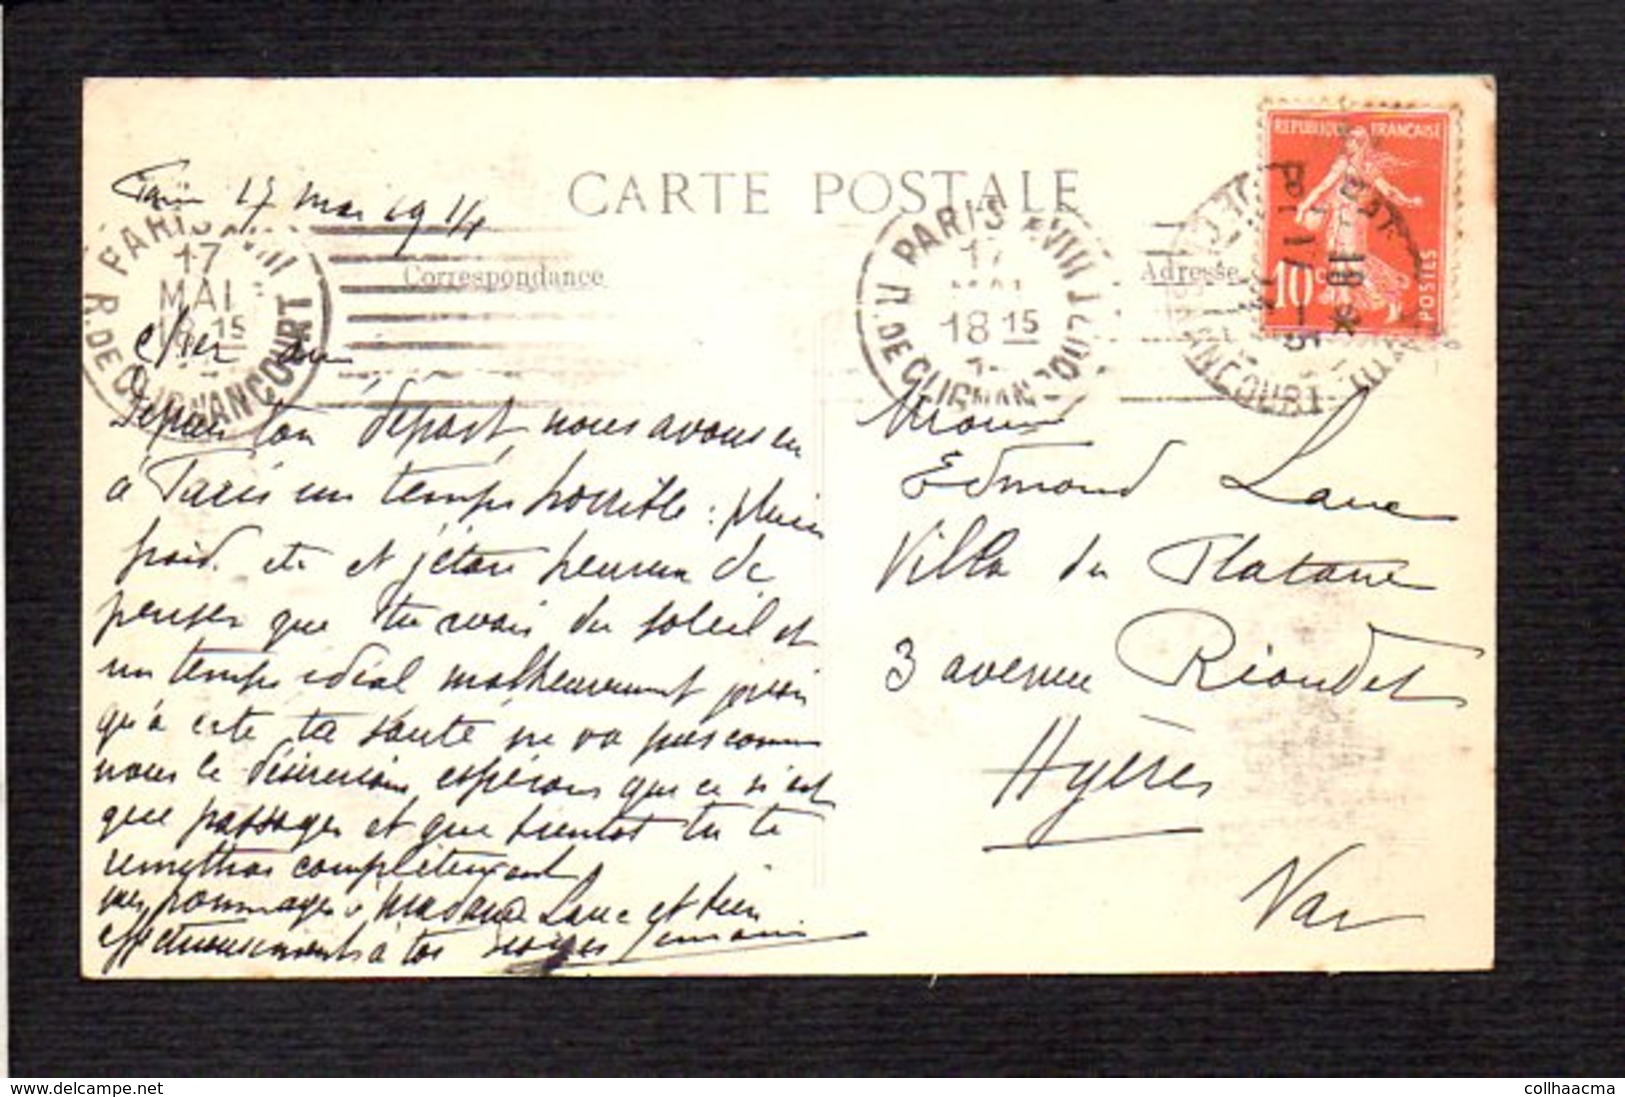 CARTE POSTALE
Paris 17 mai 1914
Correspondance
Adresse
PARIS XVIII
17
MAI
18 15
R. DE CLIGNANCOURT
PARIS XVIII
17
MAI
18 15
R. DE CLIGNANCOURT
REPUBLIQUE FRANCAISE
10 c
POSTES
Cher ami
Depuis ton départ, nous avons eu
à Paris un temps horrible : pluie
froid. etc et j'étais heureux de
penser que tu avais du soleil et
un temps idéal malheureusement je vois
qu'à cette ta santé ne va pas comme
nous le désirerions espérons que ce n'est
que passager et que bientôt tu te
remettras complètement
mes hommages à Madame Lane et bien
affectueusement à toi Georges
Edmond Lane
Villa du Platane
3 avenue Riondet
Hyères
Var
collhaacma